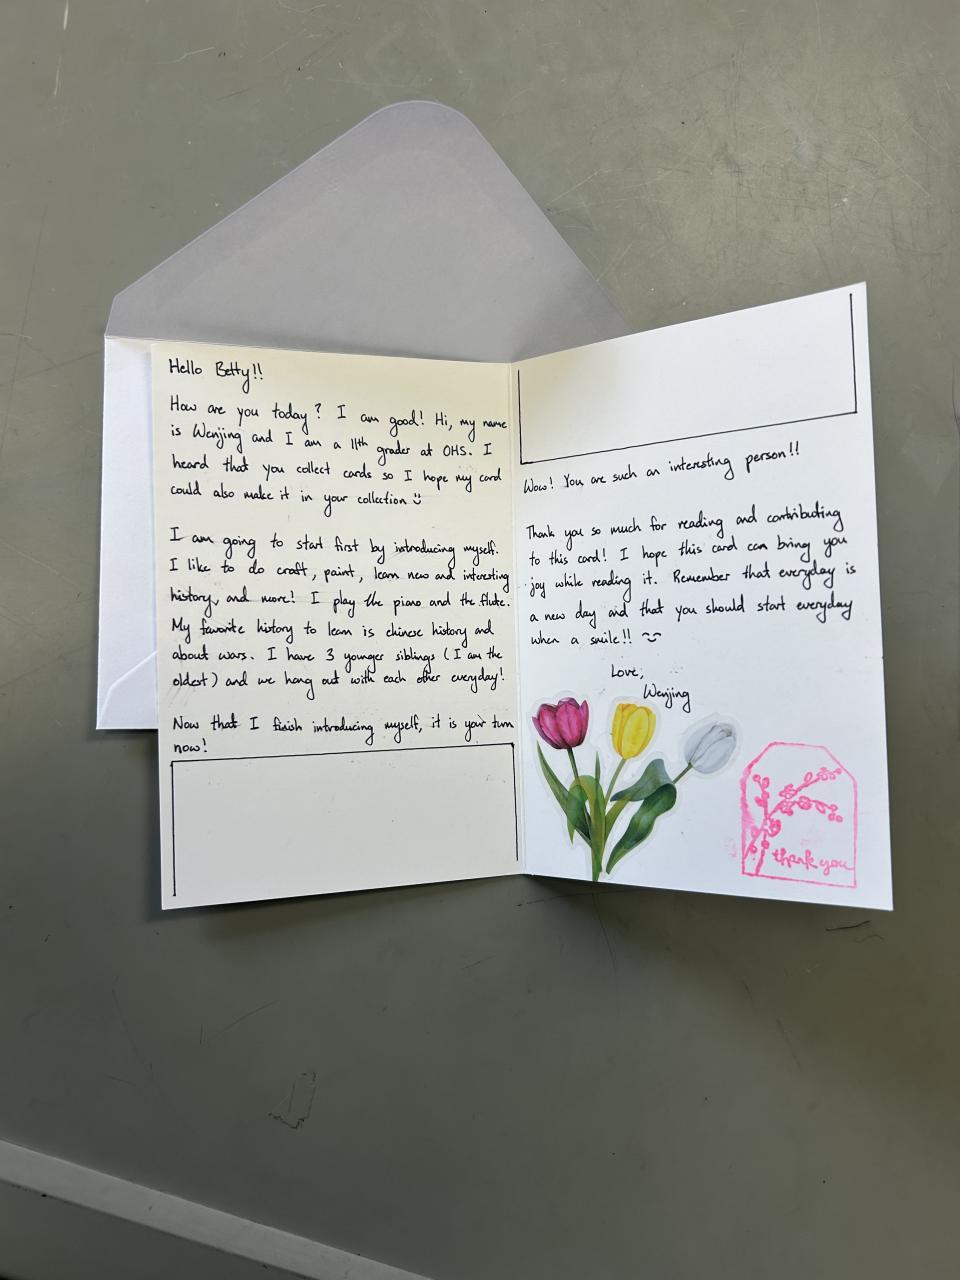 Hello Betty!!
How are you today? I am good! Hi, my name
is Wenjing and I am a 11th grader at OHS. I
heard that you collect cards so I hope my card
could also make it in your collection
I am going to start first by introducing myself.
I like to do craft, paint, learn new and interesting
history, and more! I play the piano and the flute.
My favorite history to learn is chinese history and
about wars. I have 3 younger siblings (I am the
oldest) and we hang out with each other everyday!
Now that I finish introducing myself, it is your turn
now!
Wow! You are such an interesting person!!
Thank you so much for reading and contributing
to this card! I hope this card can bring you
joy while reading it. Remember that everyday is
a new day and that you should start everyday
when a smile!!
Love,
Wenjing
thank you